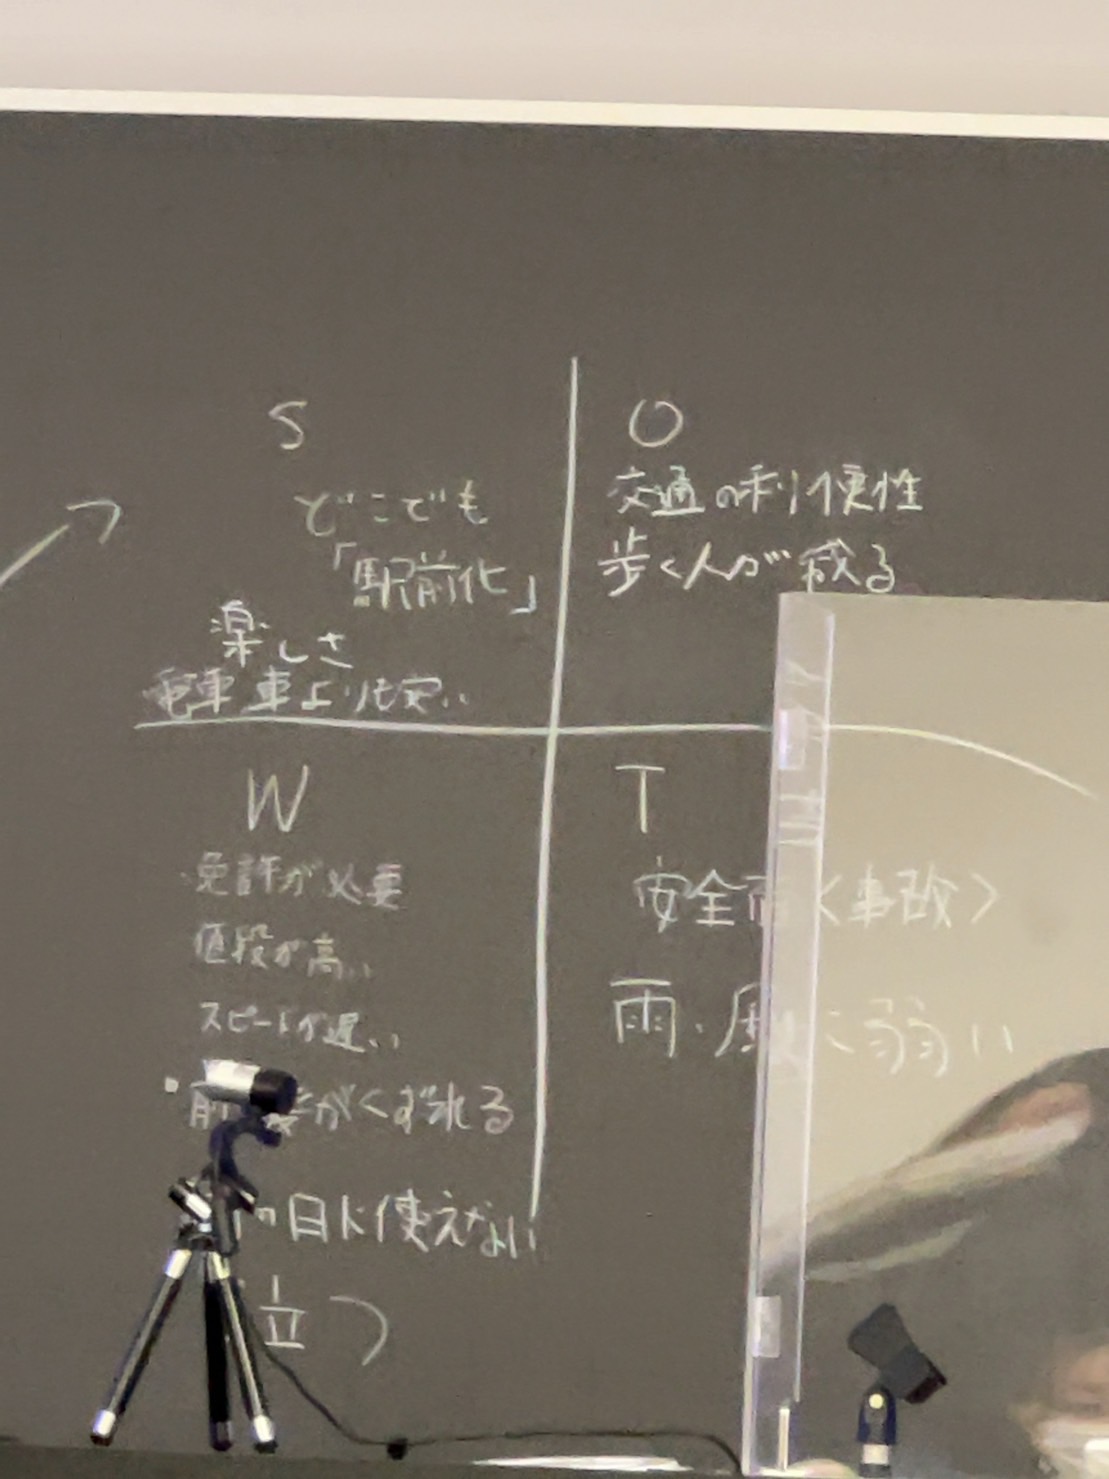 S
どこでも
「駅前化」
楽しさ
電車 車よりも安い
O
交通の利便性
歩く人が減る
W
・免許が必要
値段が高い
スピードが遅い
・前 がくずれる
の日に使えない
立つ
T
安全 <事故>
雨・風に弱い